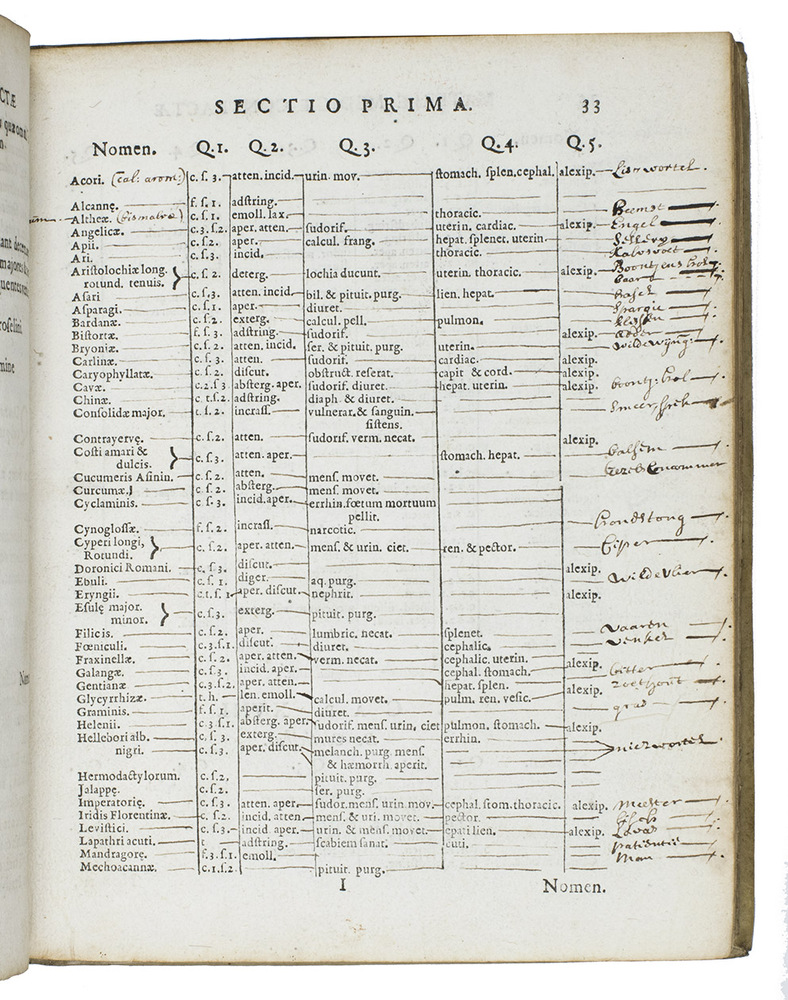 SECTIO PRIMA. 33
Nomen. Q.1. Q.2. Q.3. Q.4. Q.5.
Acori. (cal: arom:) c. ſ. 3. atten. incid. urin. mov. ſtomach. ſplen. cephal. alexip.
Alcannę. f. ſ. 1. adſtring.
Altheæ. (bismalvæ) c. ſ. 1. emoll. lax. thoracic. Heemst
Angelicæ. c. 3. ſ. 2. aper. atten. ſudorif. uterin. cardiac. alexip. Engel
Apii. c. ſ. 2. aper. calcul. frang. hepat. ſplenet. uterin. Sellery
Ari. c. ſ. 3. incid. thoracic.
Ariſtolochiæ long.
rotund. tenuis. c. ſ. 2. deterg. lochia ducunt. uterin. thoracic. alexip.
Aſari c. ſ. 3. atten. incid. bil. & pituit. purg. lien. hepat.
Aſparagi. c. ſ. 1. aper. diuret. Spargie
Bardanæ. c. ſ. 2. exterg. calcul. pell. pulmon. klissen
Biſtortæ. f. ſ. 3. adſtring. ſudorif. alexip.
Bryoniæ c. ſ. 2. atten. incid. ſer. & pituit. purg. uterin.
Carlinæ. c. ſ. 3. atten. ſudorif. cardiac. alexip.
Caryophyllatæ. c. ſ. 2. diſcut. obſtruct. reſerat. capit & cord. alexip.
Cavæ. c. 2. ſ 3 abſterg. aper. ſudorif. diuret. hepat. uterin. alexip.
Chinæ. c. t. ſ. 2. adſtring. diaph. & diuret.
Conſolidæ major. t. ſ. 2. incraſſ. vulnerat. & ſanguin.
ſiſtens.
Contrayervę. c. ſ. 2. atten. ſudorif. verm. necat. alexip.
Coſti amari &
dulcis. c. ſ. 3. atten. aper. ſtomach. hepat. balsem
Cucumeris Aſinin. c. ſ. 2. atten. menſ. movet.
Curcumæ. c. ſ. 2. abſterg. menſ. movet.
Cyclaminis. c. ſ. 3. incid. aper. errhin. fœtum mortuum
pellit.
Cynogloſſæ. f. ſ. 2. incraſſ. narcotic. hondstong
Cyperi longi,
Rotundi. c. ſ. 2. aper. atten. menſ. & urin. ciet. ren. & pector. Ciper
Doronici Romani. c. ſ. 3. diſcut. alexip.
Ebuli. c. ſ. 1. diger. aq. purg. wilde vlier
Eryngii. c. t. ſ. 1 aper. diſcut. nephrit. alexip.
Eſulę major.
minor. c. ſ. 3. exterg. pituit. purg.
Filicis. c. ſ. 2. aper. lumbric. necat. ſplenet. vaaren
Fœniculi. c. 3. ſ. 1. diſcut. diuret. cephalic. venkel
Fraxinellæ. c. ſ. 2. aper. atten. verm. necat. cephalic. uterin. alexip.
Galangæ. c. ſ. 3. incid. aper. cephal. ſtomach.
Gentianæ c. 3. ſ. 2. aper. atten. hepat. ſplen. alexip. bitter
Glycyrrhizæ. t. h. len. emoll. calcul. movet. pulm. ren. veſic. zoethout
Graminis. f. ſ. 1. aperit. diuret. gras
Helenii. c. 3 ſ. 1. abſterg. aper. ſudorif. menſ. urin. ciet pulmon. ſtomach. alexip.
Hellebori alb. c. ſ. 3. exterg. mures necat. errhin.
nigri. c. ſ. 3. aper. diſcut. melanch. purg. menſ. nieswortel
& hæmorrh. aperit.
Hermodactylorum. c. ſ. 2. pituit. purg.
Jalappę. c. ſ. 2. ſer. purg.
Imperatorię. c. ſ. 3. atten. aper. ſudor. menſ. urin. mov. cephal. ſtom. thoracic. alexip. Meester
Iridis Florentinæ. c. ſ. 2. incid. atten. menſ. & uri. movet. pector.
Leviſtici. c. ſ. 3. incid. aper. urin. & menſ. movet. epati lien. alexip. Lavas
Lapathri acuti. t adſtring. ſcabiem ſanat. cuti. patientie
Mandragorę. f. 3. ſ. 1. emoll. Man
Mechoacannæ. c. 1. ſ. 2 pituit. purg.
I Nomen.